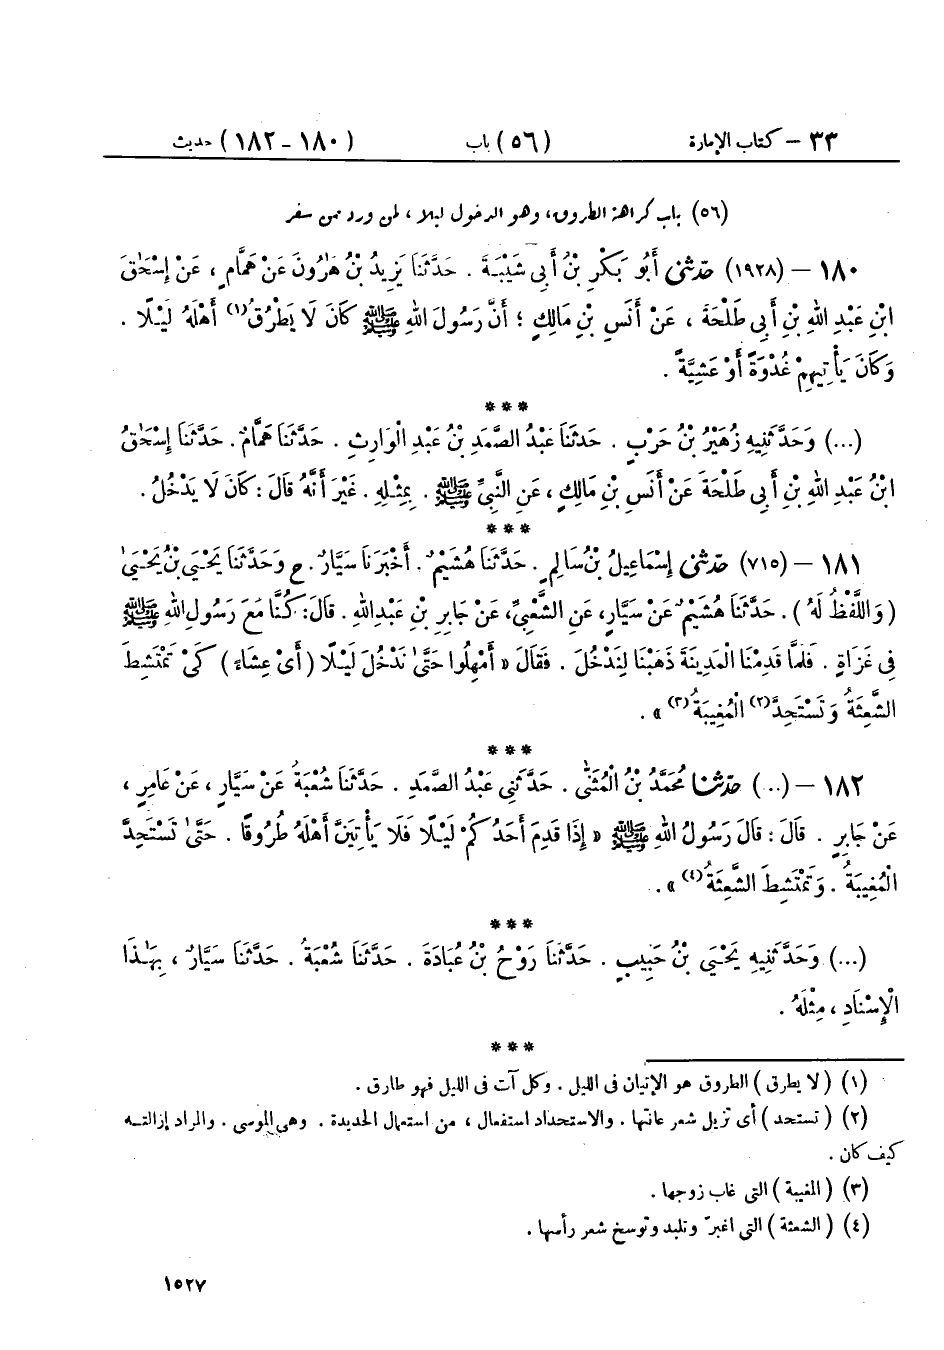 ٣٣ – كتاب الإمارة (٥٦) باب (١٨٠ – ١٨٢) حديث
(٥٦) باب كراهة الطروق، وهو الدخول ليلا، لمن ورد من سفر
١٨٠ – (١٩٢٨) حَدَّثَنِي أَبُو بَكْرِ بْنُ أَبِي شَيْبَةَ . حَدَّثَنَا يَزِيدُ بْنُ هَارُونَ عَنْ هَمَّامٍ ، عَنْ إِسْحَاقَ
ابْنِ عَبْدِ اللهِ بْنِ أَبِي طَلْحَةَ ، عَنْ أَنَسِ بْنِ مَالِكٍ ؛ أَنَّ رَسُولَ اللهِ ﷺ كَانَ لَا يَطْرُقُ(١) أَهْلَهُ لَيْلًا .
وَكَانَ يَأْتِيهِمْ غُدْوَةً أَوْ عَشِيَّةً .
* * *
(...) وَحَدَّثَنِيهِ زُهَيْرُ بْنُ حَرْبٍ . حَدَّثَنَا عَبْدُ الصَّمَدِ بْنُ عَبْدِ الْوَارِثِ . حَدَّثَنَا هَمَّامٌ . حَدَّثَنَا إِسْحَاقُ
ابْنُ عَبْدِ اللهِ بْنِ أَبِي طَلْحَةَ عَنْ أَنَسِ بْنِ مَالِكٍ ، عَنِ النَّبِيِّ ﷺ . بِمِثْلِهِ . غَيْرَ أَنَّهُ قَالَ : كَانَ لَا يَدْخُلُ .
* * *
١٨١ – (٧١٥) حَدَّثَنِي إِسْمَاعِيلُ بْنُ سَالِمٍ . حَدَّثَنَا هُشَيْمٌ . أَخْبَرَنَا سَيَّارٌ . ح وَحَدَّثَنَا يَحْيَى بْنُ يَحْيَىٰ
( وَاللَّفْظُ لَهُ ) . حَدَّثَنَا هُشَيْمٌ عَنْ سَيَّارٍ ، عَنِ الشَّعْبِيِّ ، عَنْ جَابِرِ بْنِ عَبْدِ اللهِ . قَالَ : كُنَّا مَعَ رَسُولِ اللهِ ﷺ
فِي غَزَاةٍ . فَلَمَّا قَدِمْنَا الْمَدِينَةَ ذَهَبْنَا لِنَدْخُلَ . فَقَالَ « أَمْهِلُوا حَتَّىٰ نَدْخُلَ لَيْلًا ( أَيْ عِشَاءً ) كَيْ تَمْتَشِطَ
الشَّعِثَةُ وَتَسْتَحِدَّ(٢) الْمُغِيبَةُ(٣) » .
* * *
١٨٢ – (...) حَدَّثَنَا مُحَمَّدُ بْنُ الْمُثَنَّىٰ . حَدَّثَنِي عَبْدُ الصَّمَدِ . حَدَّثَنَا شُعْبَةُ عَنْ سَيَّارٍ ، عَنْ عَامِرٍ ،
عَنْ جَابِرٍ . قَالَ : قَالَ رَسُولُ اللهِ ﷺ « إِذَا قَدِمَ أَحَدُكُمْ لَيْلًا فَلَا يَأْتِيَنَّ أَهْلَهُ طُرُوقًا . حَتَّىٰ تَسْتَحِدَّ
الْمُغِيبَةُ . وَتَمْتَشِطَ الشَّعِثَةُ(٤) » .
* * *
(...) وَحَدَّثَنِيهِ يَحْيَى بْنُ حَبِيبٍ . حَدَّثَنَا رَوْحُ بْنُ عُبَادَةَ . حَدَّثَنَا شُعْبَةُ . حَدَّثَنَا سَيَّارٌ ، بِهَٰذَا
الْإِسْنَادِ ، مِثْلَهُ .
* * *
(١) ( لا يطرق ) الطروق هو الإتيان في الليل . وكل آت في الليل فهو طارق .
(٢) ( تستحد ) أي تزيل شعر عانتها . والاستحداد استفعال ، من استعمال الحديدة . وهي الموسى . والمراد إزالته
كيف كان .
(٣) ( المغيبة ) التي غاب زوجها .
(٤) ( الشعثة ) التي اغبرّ وتلبد وتوسخ شعر رأسها .
١٥٢٧